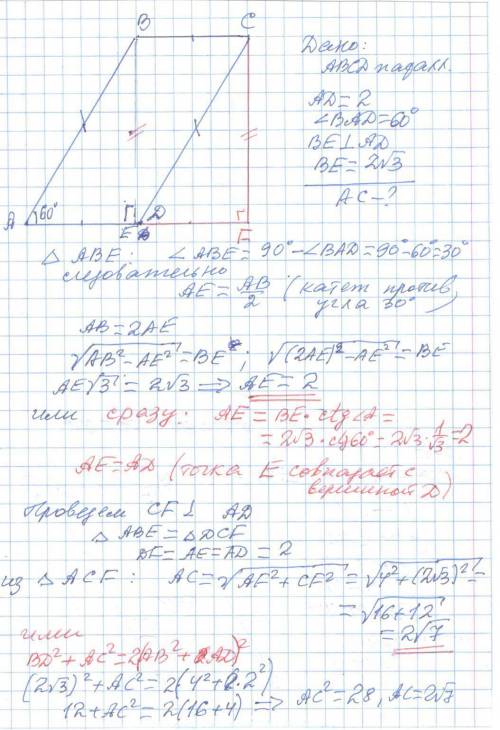 B C
Дано:
ABCD паралл.
AD = 2
∠BAD = 60°
BE ⊥ AD
BE = 2√3
AC - ?
A 60° E D F
△ ABE: ∠ ABE = 90° - ∠BAD = 90° - 60° = 30°
следовательно
AE = AB/2 (катет против
угла 30°)
AB = 2AE
√(AB² - AE²) = BE ; √((2AE)² - AE²) = BE
AE√3 = 2√3 => AE = 2
или сразу: AE = BE · ctg∠A =
= 2√3 · ctg60° = 2√3 · 1/√3 = 2
AE = AD (точка E совпадает с
вершиной D)
Проведем CF ⊥ AD
△ ABE = △ DCF
DF = AE = AD = 2
из △ ACF: AC = √(AF² + CF²) = √(4² + (2√3)²) =
= √(16 + 12)
= 2√7
или
BD² + AC² = 2(AB² + AD)²
(2√3)² + AC² = 2(4² + 2²)
12 + AC² = 2(16 + 4) => AC² = 28, AC = 2√7